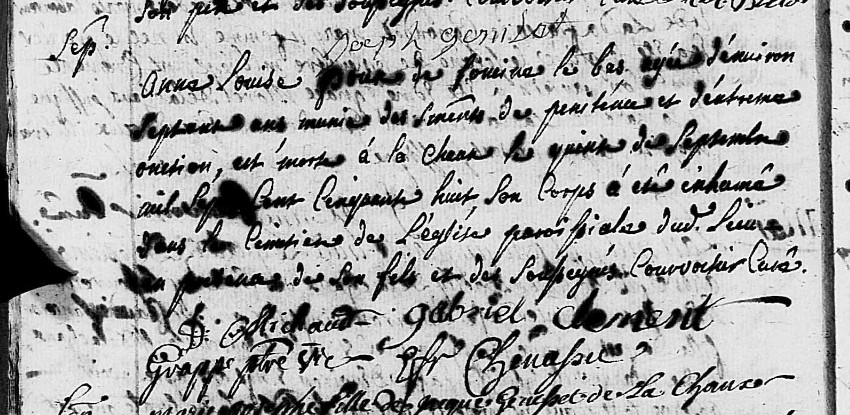 son pere et des soussignés
Sep.
joseph genisset
Anne Louise de Jomine le bas agée d'environ
septante ans munie des sments de penitence et d'extreme
onction, est morte à la Chaux le quinze de Septembre
mil sept Cent Cinquante huit son Corps à eté inhumé
dans le Cimetiere de L'église paroissiale dud. Lieu
en presence de son fils et des soussignés. Courvoisier Curé.
D. Michaud gabriel clement
Grappe ptre vic
fille de de La Chaux